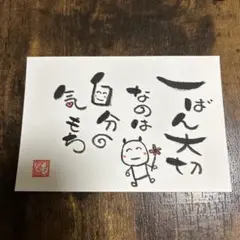 一ばん大切
なのは
自分の
気もち